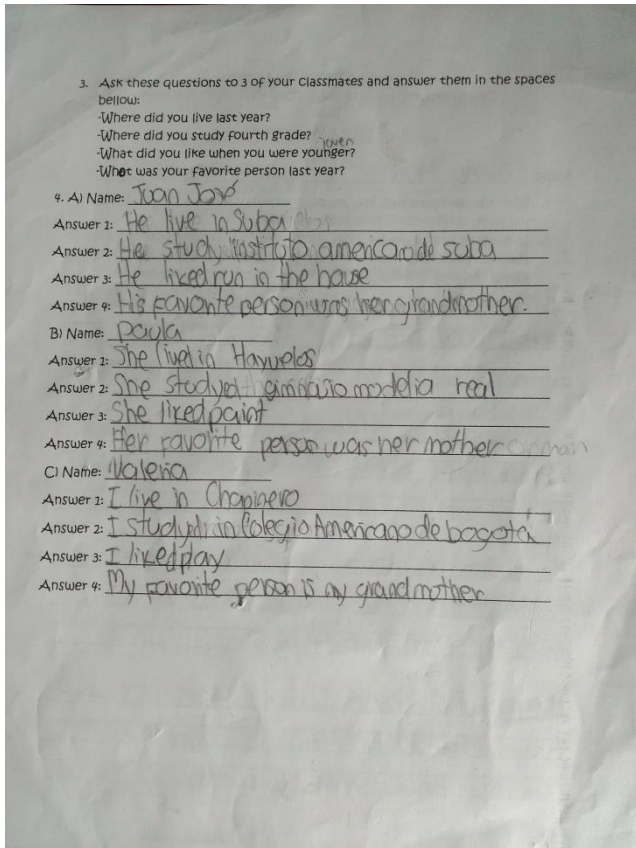 3. Ask these questions to 3 of your classmates and answer them in the spaces
bellow:
-Where did you live last year?
-Where did you study fourth grade?
joven
-What did you like when you were younger?
-What was your favorite person last year?
4. A) Name: Juan José
Answer 1: He live in Suba
Answer 2: He study instituto americano de suba
Answer 3: He liked run in the house
Answer 4: His favorite person was her grandmother.
B) Name: paula
Answer 1: She lived in Hayuelos
Answer 2: She studyed gimnasio modelia real
Answer 3: She liked paint
Answer 4: Her favorite person was her mother
C) Name: Valeria
Answer 1: I live in Chapinero
Answer 2: I study in Colegio Americano de bogotá
Answer 3: I liked play
Answer 4: My favorite person is my grandmother